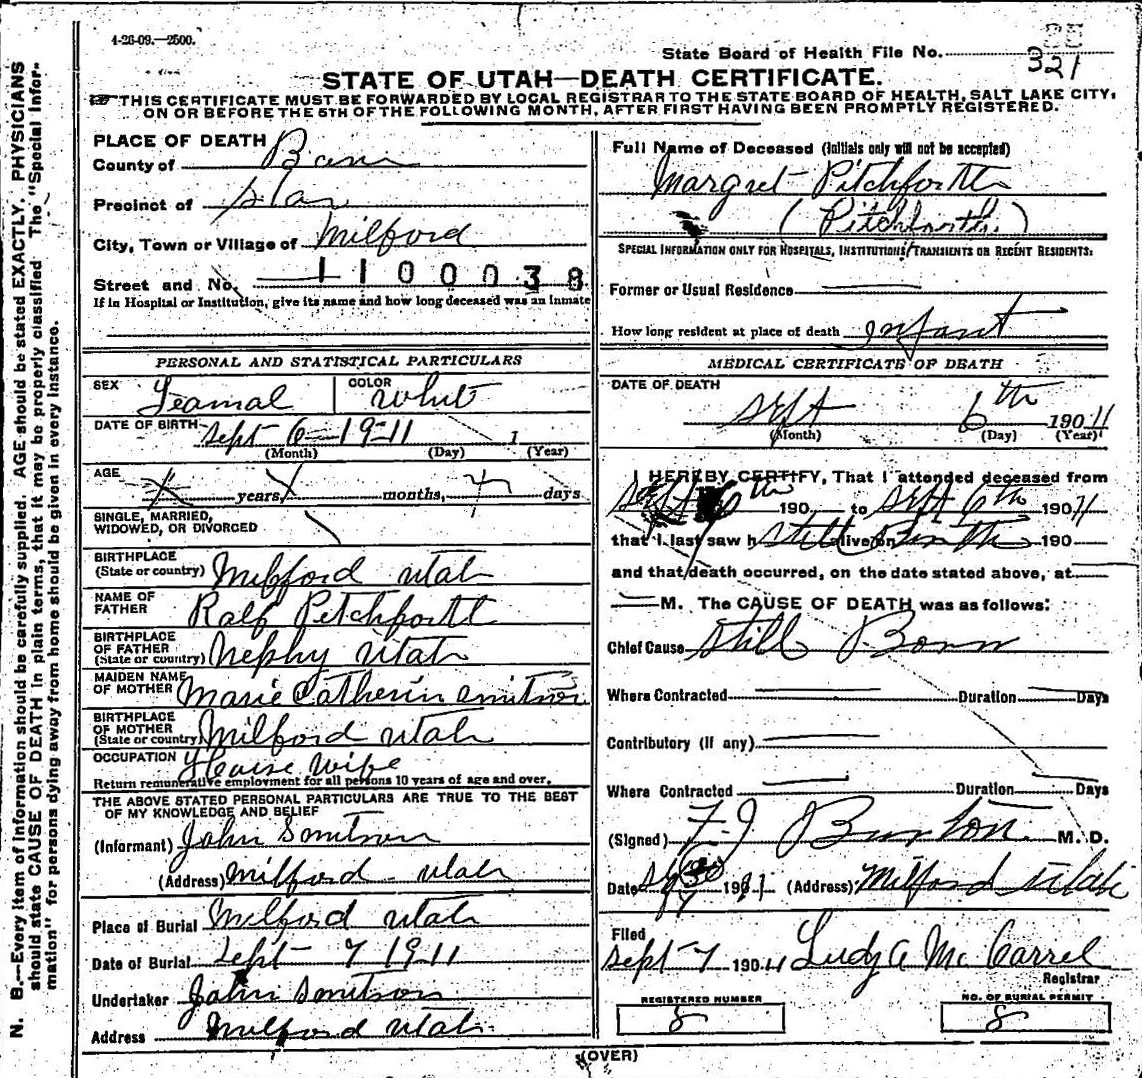 4-26-09.—2500.
State Board of Health File No. 321
STATE OF UTAH—DEATH CERTIFICATE.
THIS CERTIFICATE MUST BE FORWARDED BY LOCAL REGISTRAR TO THE STATE BOARD OF HEALTH, SALT LAKE CITY,
ON OR BEFORE THE 5TH OF THE FOLLOWING MONTH, AFTER FIRST HAVING BEEN PROMPTLY REGISTERED.
N. B.—Every item of information should be carefully supplied. AGE should be stated EXACTLY. PHYSICIANS
should state CAUSE OF DEATH in plain terms, that it may be properly classified The "Special Infor-
mation" for persons dying away from home should be given in every instance.
PLACE OF DEATH
County of
Precinct of Star
City, Town or Village of Milford
Street and No. 1100038
If in Hospital or Institution, give its name and how long deceased was an inmate
PERSONAL AND STATISTICAL PARTICULARS
SEX Feamal COLOR White
DATE OF BIRTH Sept 6—1911 1
(Month) (Day) (Year)
AGE years months, days
SINGLE, MARRIED,
WIDOWED, OR DIVORCED
BIRTHPLACE
(State or country) Milford Utah
NAME OF
FATHER Ralf Pitchforth
BIRTHPLACE
OF FATHER
(State or country) Nephy Utah
MAIDEN NAME
OF MOTHER Marie Catherin Smitson
BIRTHPLACE
OF MOTHER
(State or country) Milford Utah
OCCUPATION House Wife
Return remunerative employment for all persons 10 years of age and over.
THE ABOVE STATED PERSONAL PARTICULARS ARE TRUE TO THE BEST
OF MY KNOWLEDGE AND BELIEF
(Informant) John Smitson
(Address) Milford Utah
Place of Burial Milford Utah
Date of Burial Sept 7 1911
Undertaker John Smitson
Address Milford Utah
Full Name of Deceased (Initials only will not be accepted)
Margret Pitchforth
(Pitchforth.)
SPECIAL INFORMATION ONLY FOR HOSPITALS, INSTITUTIONS, TRANSIENTS OR RECENT RESIDENTS:
Former or Usual Residence
How long resident at place of death infant
MEDICAL CERTIFICATE OF DEATH
DATE OF DEATH
Sept 6th 1911
(Month) (Day) (Year)
I HEREBY CERTIFY, That I attended deceased from
Sept 6th 190 to Sept 6th 1911
that I last saw h alive on 190
and that death occurred, on the date stated above, at
M. The CAUSE OF DEATH was as follows:
Chief Cause Still Born
Where Contracted Duration Days
Contributory (If any)
Where Contracted Duration Days
(Signed) F. J Burton M. D.
Date 1911 (Address) Milford Utah
Filed
Sept 7 1911 Ludy A McCarrel
Registrar
REGISTERED NUMBER
8
NO. OF BURIAL PERMIT
8
(OVER)